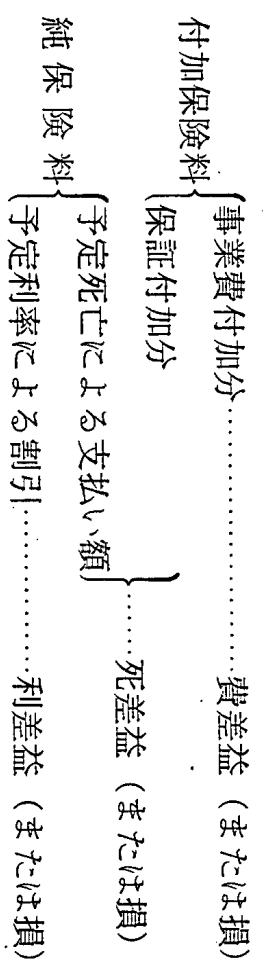 付加保険料{事業費付加分…………費差益(または損)
保証付加分
純保険料{予定死亡による支払い額}……死差益(または損)
予定利率による割引…………利差益(または損)